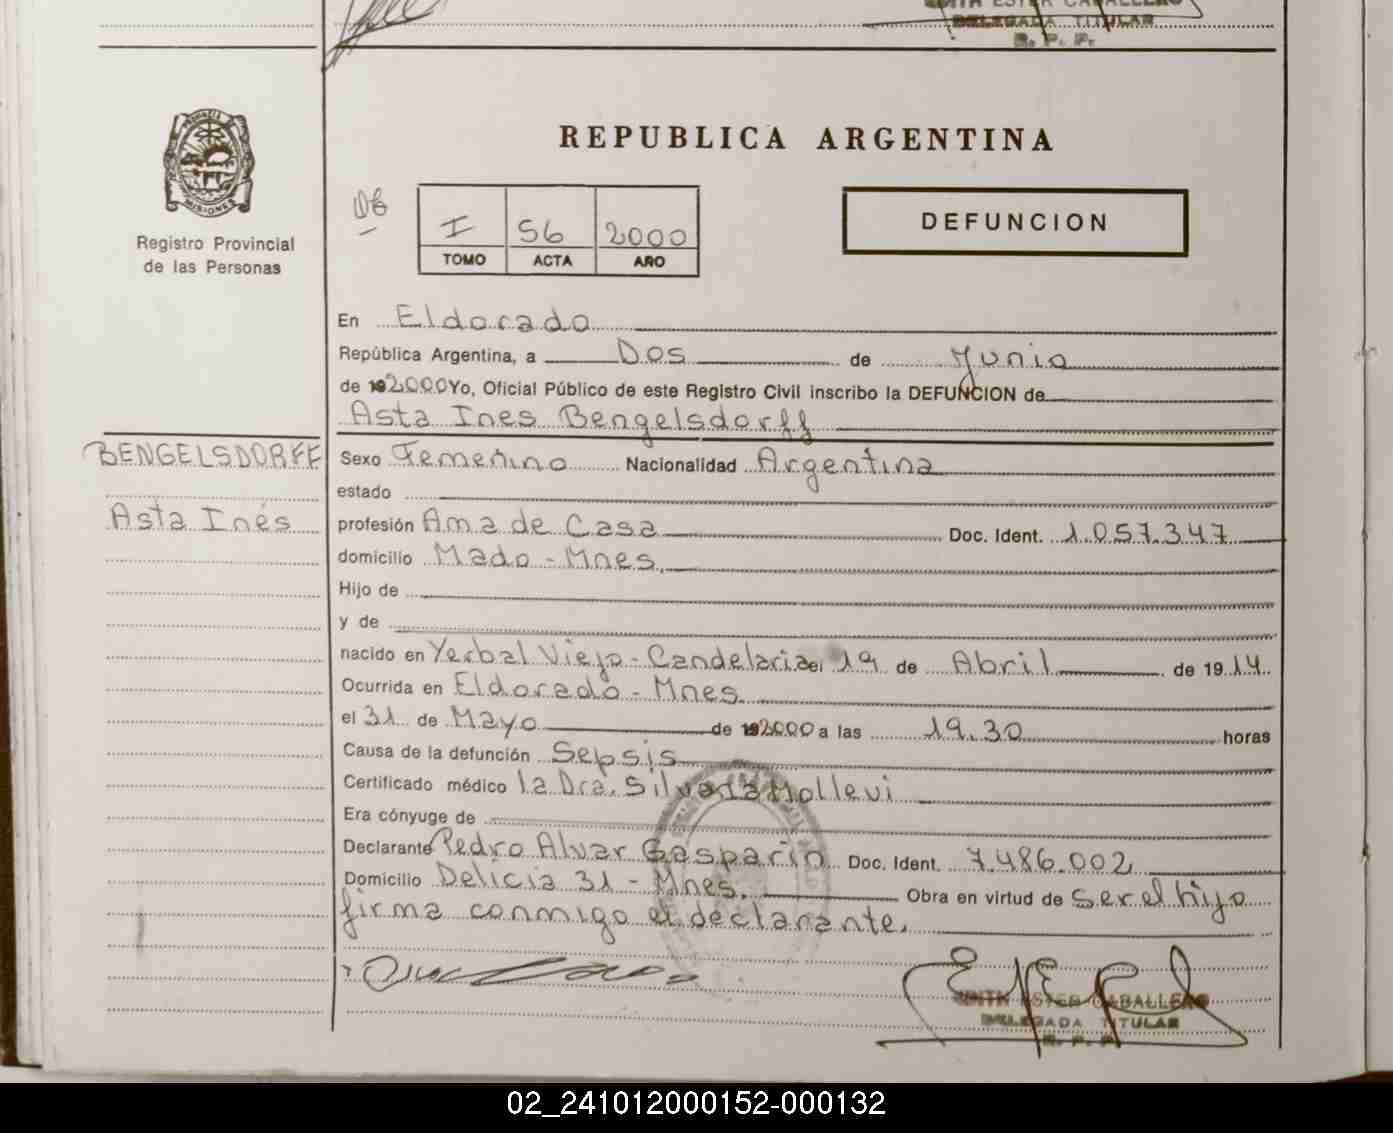 EDITH ESTER CABALLERO
DELEGADA TITULAR
R. P. P.
PROVINCIA DE
MISIONES
Registro Provincial
de las Personas
REPUBLICA ARGENTINA
I 56 2000
TOMO ACTA AÑO
DEFUNCION
En Eldorado
República Argentina, a Dos de Junio
de 192000 Yo, Oficial Público de este Registro Civil inscribo la DEFUNCION de
Asta Ines Bengelsdorff
BENGELSDORFF
Asta Inés
Sexo Femenino Nacionalidad Argentina
estado
profesión Ama de Casa Doc. Ident. 1.057.347
domicilio Mado - Mnes.
Hijo de
y de
nacido en Yerbal Viejo - Candelaria el 19 de Abril de 1914.
Ocurrida en Eldorado - Mnes.
el 31 de Mayo de 192000 a las 19.30 horas
Causa de la defunción Sepsis
Certificado médico la Dra. Silvia Mollevi
Era cónyuge de
Declarante Pedro Alvar Gasparin Doc. Ident. 7.486.002
Domicilio Delicia 31 - Mnes. Obra en virtud de ser el hijo
firma conmigo el declarante.
EDITH ESTER CABALLERO
DELEGADA TITULAR
R. P. P.
02_241012000152-000132